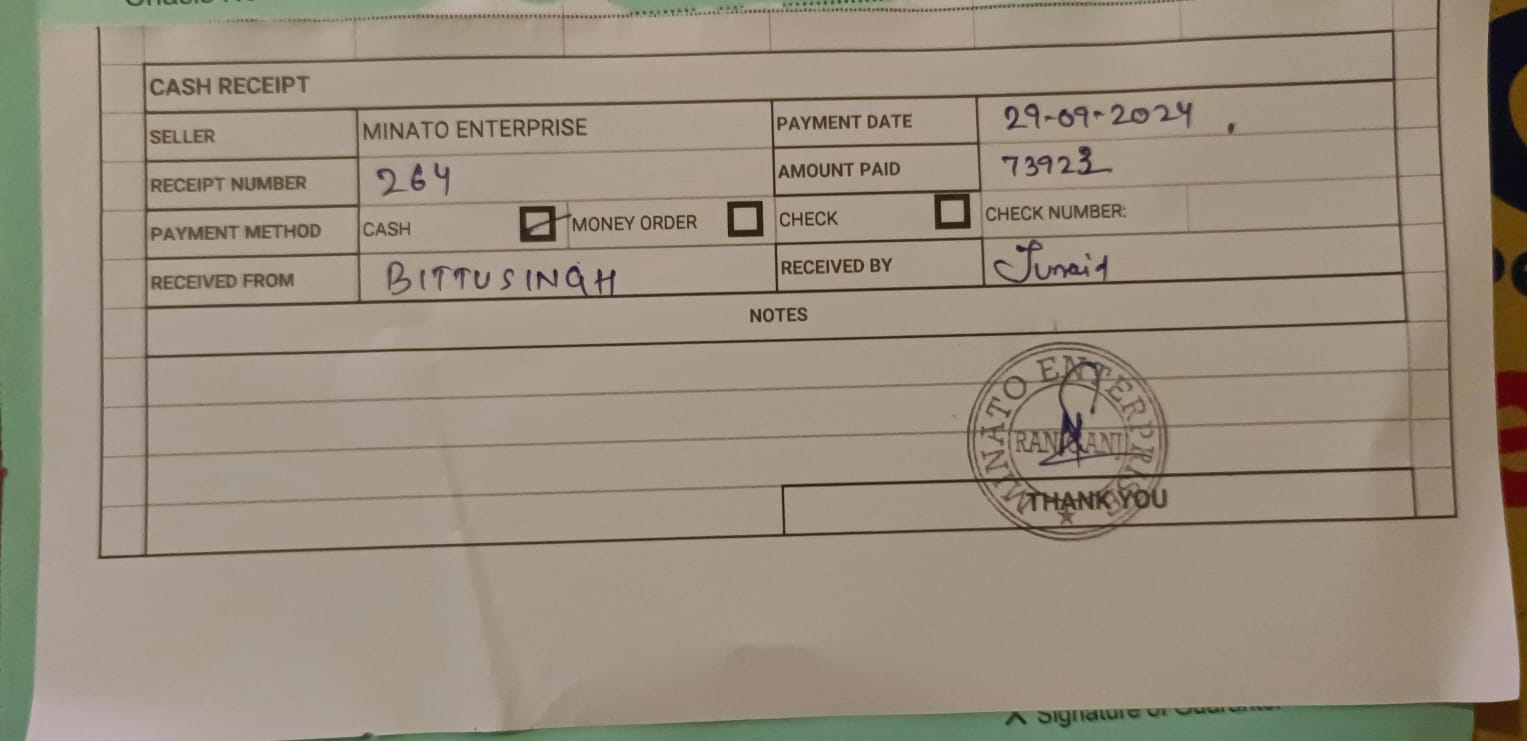 CASH RECEIPT
SELLER MINATO ENTERPRISE PAYMENT DATE 29-09-2024
RECEIPT NUMBER 264 AMOUNT PAID 73923
PAYMENT METHOD CASH MONEY ORDER CHECK CHECK NUMBER:
RECEIVED FROM BITTU SINGH RECEIVED BY Junaid
NOTES
MINATO ENTERPRISE
THANK YOU
Signature of